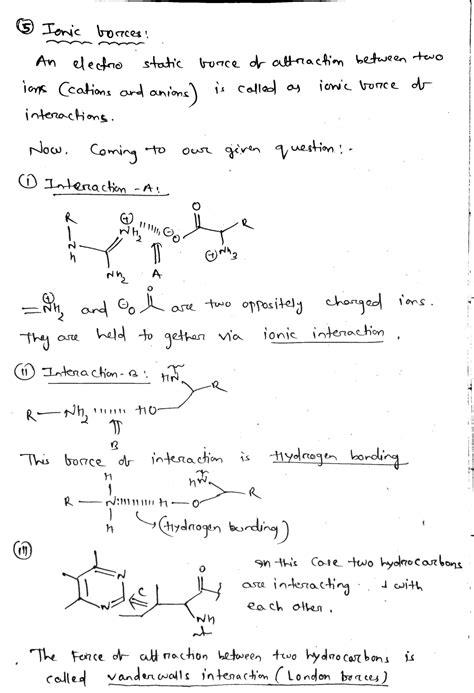 ⑤ Ionic forces:
An electro static force of attraction between two
ions (cations and anions) is called as ionic force of
interactions.
Now. Coming to our given question:-
(i) Interaction-A:
R
N
H
⊕
NH2
NH2
⊖O
O
R
⊕NH3
A
=⊕NH2 and ⊖O O are two oppositely charged ions.
They are held to gether via ionic interaction.
(ii) Interaction-B:
HN
R
R—NH2 HO
B
This force of interaction is Hydrogen bonding
H
R—N H—O
H
HN
R
(Hydrogen bonding)
(iii)
N
N
C
O
NH
In this case two hydrocarbons
are interacting with
each other.
The Force of attraction between two hydrocarbons is
called vanderwalls interaction (London forces)